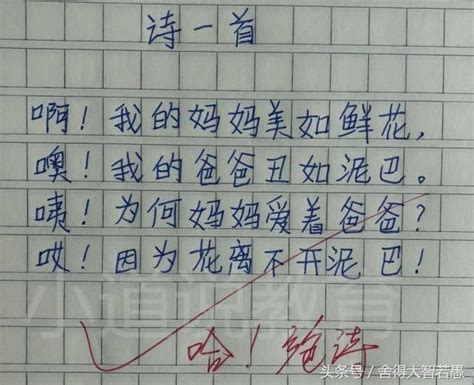 诗一首
啊！我的妈妈美如鲜花，
噢！我的爸爸丑如泥巴。
咦！为何妈妈爱着爸爸？
哎！因为花离不开泥巴！
小道说教育
哈！绝诗
头条号／舍得大智若愚